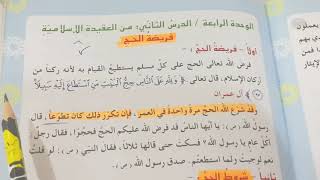 الوحدة الرابعة / الدرس الثاني: من العقيدة الاسلامية
فريضة الحج
اولاً - فريضة الحج :
فرض الله تعالى الحج على كل مسلم يستطيع القيام به لأنه ركناً من
أركان الإسلام، قال تعالى ﴿ وَلِلَّهِ عَلَى النَّاسِ حِجُّ الْبَيْتِ مَنِ اسْتَطَاعَ إِلَيْهِ سَبِيلًا
آل عمران
وقد شرع الله الحج مرة واحدة في العمر، فإن تكرر ذلك كان تطوعاً، قال
رسول الله (ص): يا أيها الناس قد فرض الله عليكم الحج فحجوا، فقال رجل
أكل عام يا رسول الله؟ فسكت حتى قالها ثلاثاً، فقال النبي (ص): لو قلت
نعم لوجبت ولما استطعتم. صدق رسول الله (ص).
ثانياً - شروط الحج
يعملون